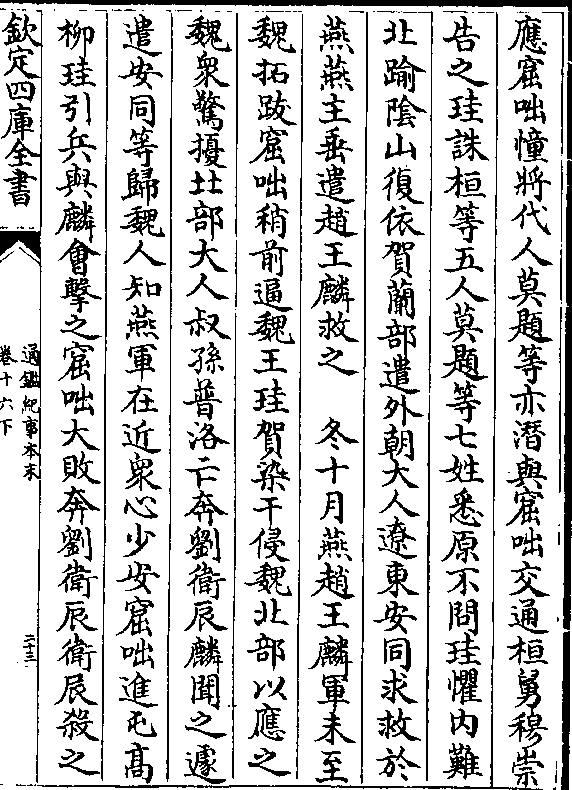 應窟咄幢將代人莫題等亦潛與窟咄交通桓舅穆崇
告之珪誅桓等五人莫題等七姓悉原不問珪懼内難
北踰陰山復依賀蘭部遣外朝大人遼東安同求救於
燕燕主垂遣趙王麟救之　冬十月燕趙王麟軍未至
魏拓跋窟咄稍前逼魏王珪賀染干侵魏北部以應之
魏衆驚擾北部大人叔孫普洛亡奔劉衛辰麟聞之遽
遣安同等歸魏人知燕軍在近衆心少安窟咄進屯高
柳珪引兵與麟會擊之窟咄大敗奔劉衛辰衛辰殺之
欽定四庫全書
通鑑紀事本末
卷十六下
二十三